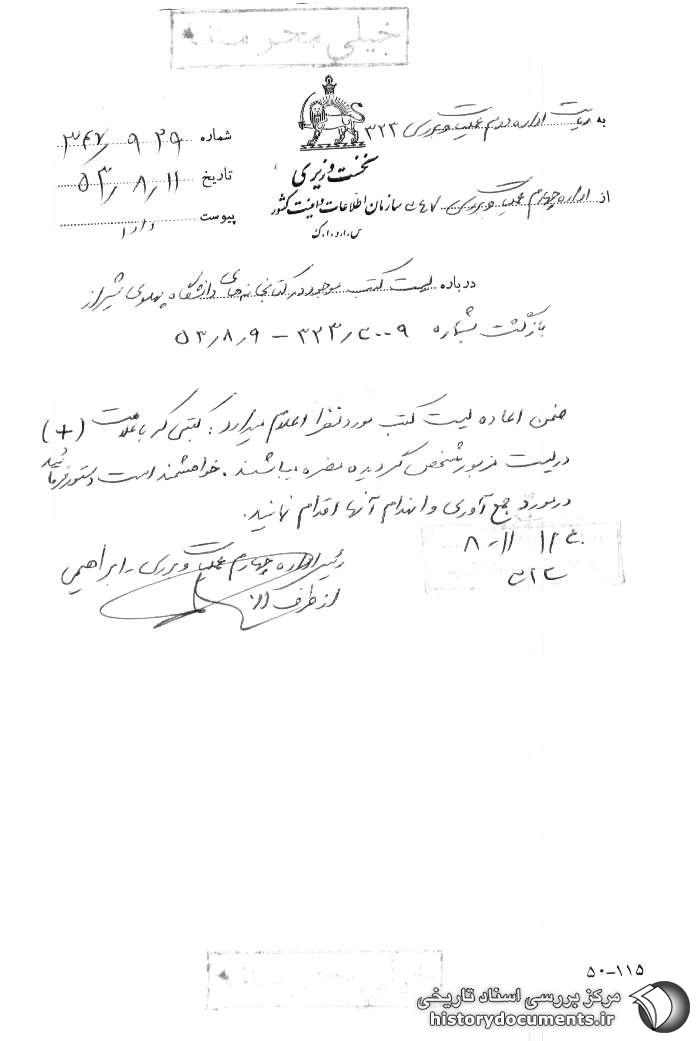 خیلی محرمانه
به ریاست اداره دوم عملیات و بررسی ۳۲۳
شماره ۳۴۷/۹۲۹
نخست وزیری
تاریخ ۵۳/۸/۱۱
از اداره چهارم عملیات و بررسی ۳۴۷
سازمان اطلاعات و امنیت کشور
پیوست دارد
س.ا.و.ا.ک
درباره لیست کتب موجود در کتابخانه‌های دانشگاه پهلوی شیراز
بازگشت بشماره ۳۲۳/۲۰۰۹ – ۵۳/۸/۹
ضمن اعاده لیست کتب مورد نظر اعلام میدارد: کتبی که با علامت (+)
در لیست مزبور مشخص گردیده مضره میباشند. خواهشمند است دستور فرمائید
در مورد جمع آوری و انهدام آنها اقدام نمایند.
رئیس اداره چهارم عملیات و بررسی - ابراهیمی
از طرف
۸/۱۱
۵۰-۱۱۵
مرکز بررسی اسناد تاریخی
historydocuments.ir